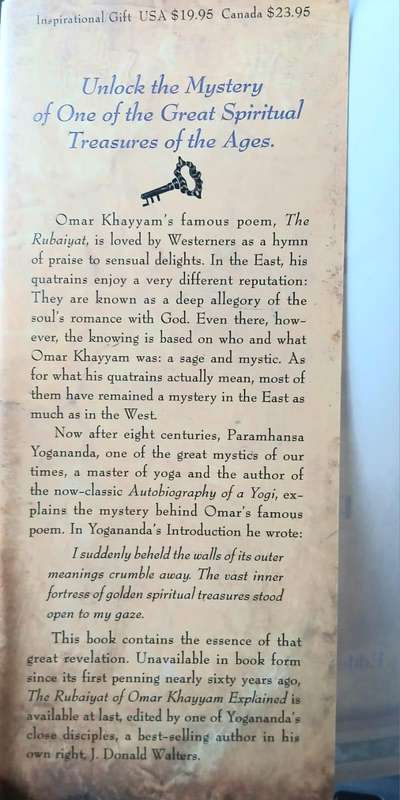 Inspirational Gift USA $19.95 Canada $23.95
Unlock the Mystery
of One of the Great Spiritual
Treasures of the Ages.
Omar Khayyam's famous poem, The
Rubaiyat, is loved by Westerners as a hymn
of praise to sensual delights. In the East, his
quatrains enjoy a very different reputation:
They are known as a deep allegory of the
soul's romance with God. Even there, how-
ever, the knowing is based on who and what
Omar Khayyam was: a sage and mystic. As
for what his quatrains actually mean, most of
them have remained a mystery in the East as
much as in the West.
Now after eight centuries, Paramhansa
Yogananda, one of the great mystics of our
times, a master of yoga and the author of
the now-classic Autobiography of a Yogi, ex-
plains the mystery behind Omar's famous
poem. In Yogananda's Introduction he wrote:
I suddenly beheld the walls of its outer
meanings crumble away. The vast inner
fortress of golden spiritual treasures stood
open to my gaze.
This book contains the essence of that
great revelation. Unavailable in book form
since its first penning nearly sixty years ago,
The Rubaiyat of Omar Khayyam Explained is
available at last, edited by one of Yogananda's
close disciples, a best-selling author in his
own right, J. Donald Walters.